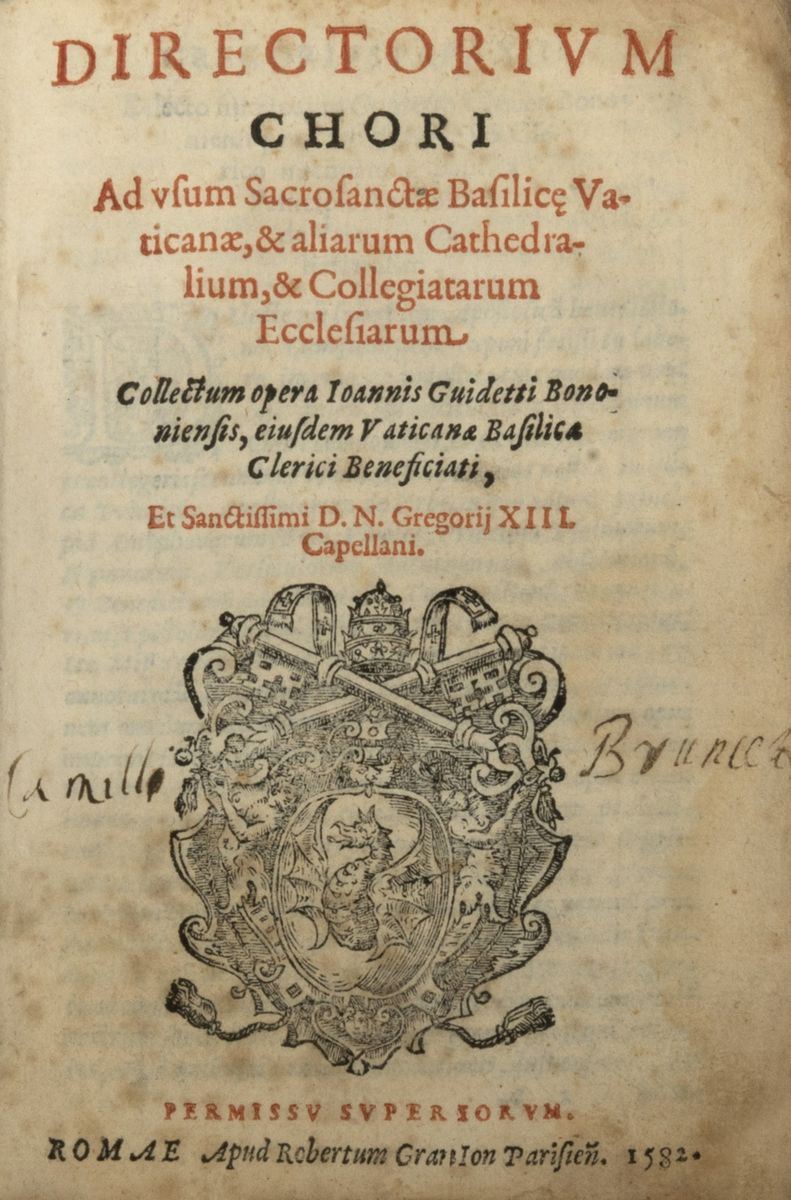 DIRECTORIVM
CHORI
Ad vſum Sacroſanctæ Baſilicę Va-
ticanæ, & aliarum Cathedra-
lium, & Collegiatarum
Eccleſiarum
Collectum opera Ioannis Guidetti Bono-
nienſis, eiuſdem Vaticanæ Baſilicæ
Clerici Beneficiati,
Et Sanctiſſimi D. N. Gregorij XIII.
Capellani.
Camillo
PERMISSV SVPERIORVM.
ROMAE Apud Robertum GranIon Pariſieñ. 1582.